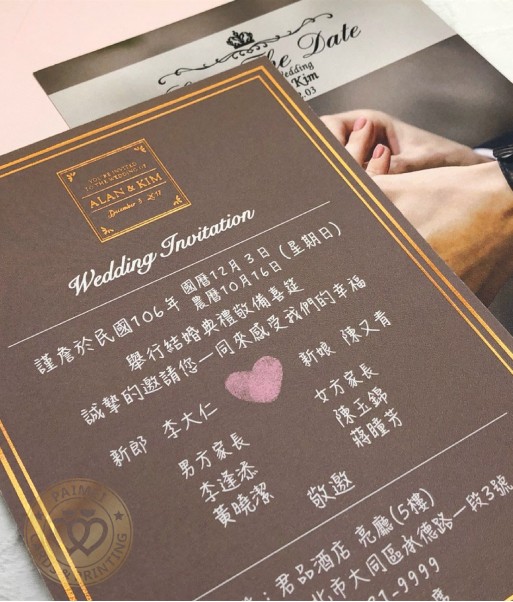 The Date
Wedding
Kim
.03
YOU'RE INVITED
TO THE WEDDING OF
ALAN & KIM
December 3, 2017
Wedding Invitation
謹詹於民國106年 國曆12月3日(星期日)
農曆10月16日
舉行結婚典禮敬備喜筵
誠摯的邀請您一同來感受我們的幸福
新郎 李大仁
新娘 陳又青
男方家長
李逢恭
黃曉潔
女方家長
陳玉錦
蔣瞳芳
敬邀
:君品酒店 亮廳(5樓)
北市大同區承德路一段3號
1-9999
席
PAIMEI
CARDS PRINTING